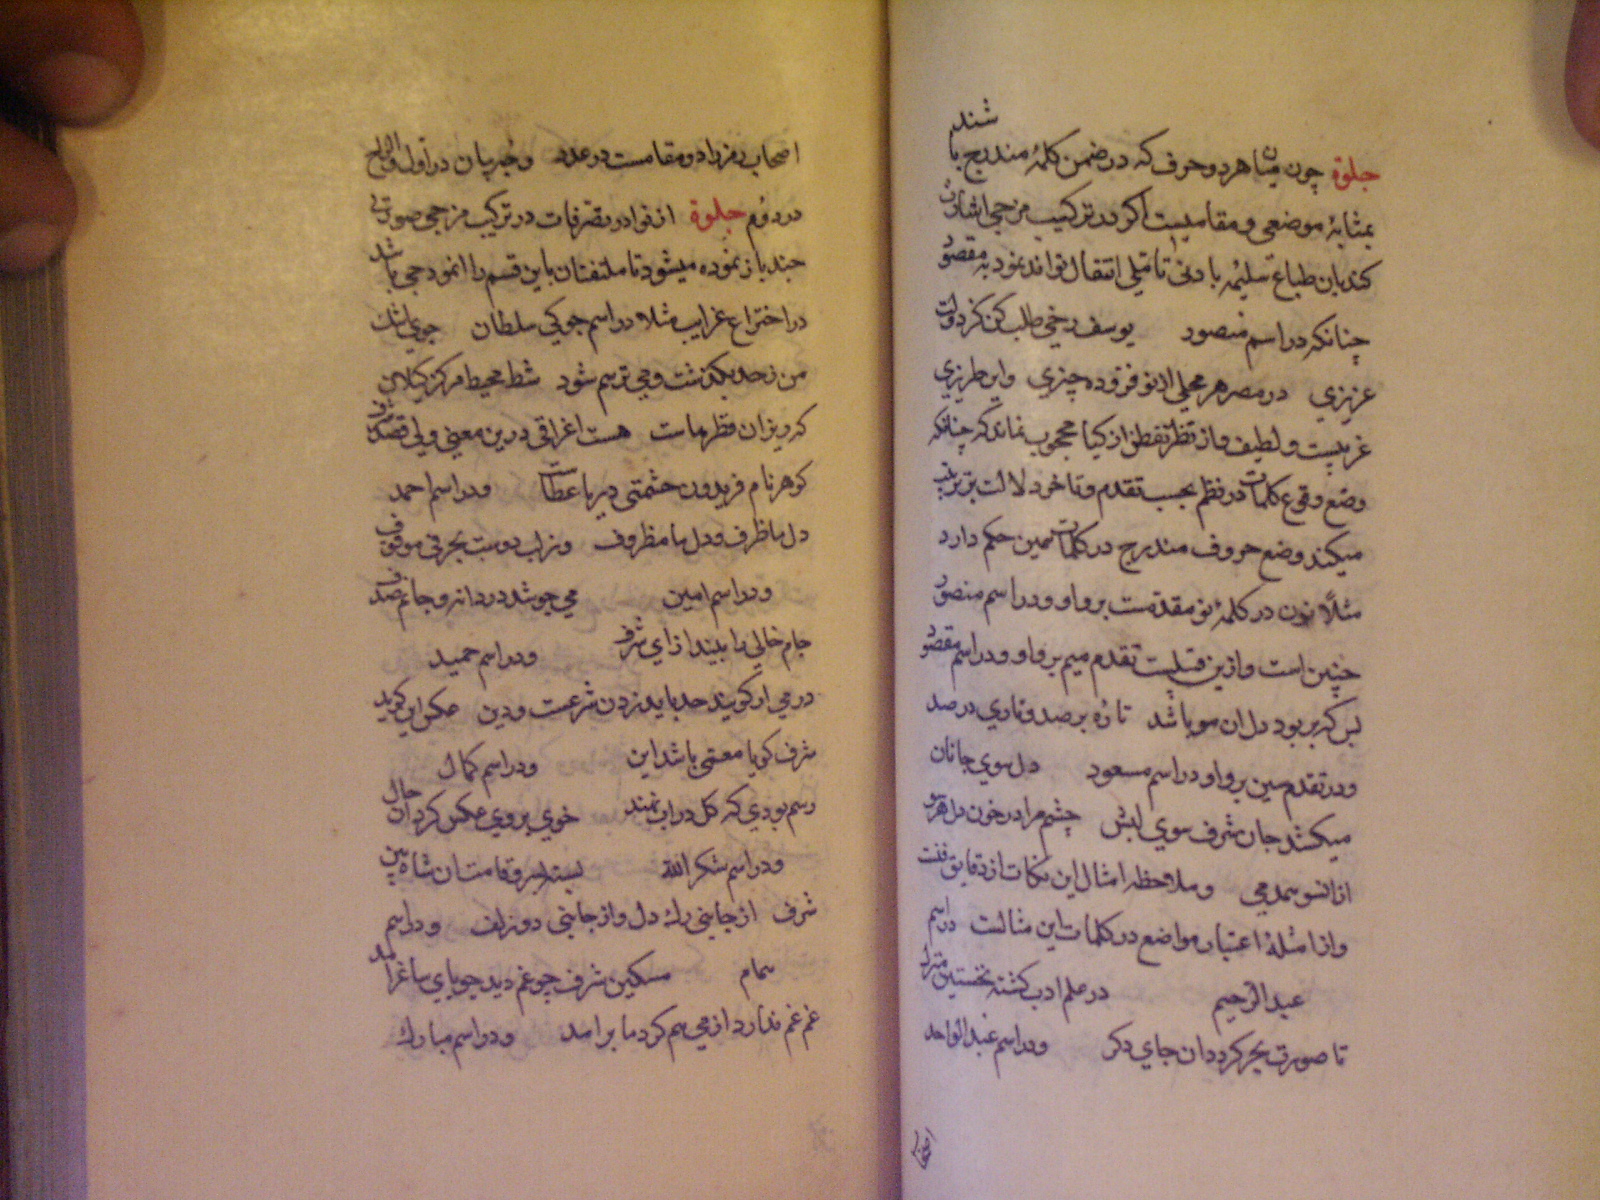 جلوة چون میان هر دو حرف که در ضمن کلمهٔ مندرج باشند
بمثابهٔ موضعی و مقامیست اکر در ترکیب مزجی اشارت
کنند بان طباع سلیمه بادنی تاملی انتقال تواند نمود به مقصود
چنانکه در اسم منصور یوسف رخی طلب کن کز دولت
عزیزی در مصر هر محلی افزوده چیزی و این طرزی
غریبست و لطیف و از نظر تفطن اذکیا محجوب نماند که چنانکه
وضع وقوع کلمات در نظم بحسب تقدم و تاخر دلالت بر ترتیب
میکند وضع حروف مندرج در کلمات همین حکم دارد
مثلاً نون در کلمهٔ نو مقدمست بر واو و در اسم منصور
چنین است و ازین قبیلست تقدم میم بر واو و در اسم مقصود
بس که بر بود دل ان مو باشد تازه بر صد و ناری در صد
و در تقدم سین بر واو در اسم مسعود دل سوی جانان
میکشد جان شرف سوی لبش چشم مرا در خون دل هر سو
از انسو سمدمی و ملاحظه امثال این نکات از دقایق فنست
و از امثلهٔ اعتبار مواضع در کلمات این مثالست در اسم
عبد الرحیم در علم ادب کشته نخستین منزل
تا صورت بجر کردد ان جای دکر و در اسم عبد الواحد
اصحاب
اصحاب رمز را دو مقامست در عدد و جبر بان در اول و
در دوم جلوة از نوادر تصرفات در ترکیب مزجی صورتی
چند باز نموده میشود تا ملتفتان باین قسم را انموذجی باشد
در اختراع غرایب مثلا در اسم جوکی سلطان جوی اشک
من ز حد بکذشت و می ترسم شود شط محیط مرکز کلان
که ریزان قطرهاست هست اغراقی درین معنی ولی قصد شرف
کوهر نام فریدون حشمتی دریا عطاست و در اسم احمد
دل ما ظرف و دل ما مظروف و ز لب دوست بحرفی موقوف
و در اسم امین می جوشد در دانه و جانم صدف
جام خالی را بیند از ای شرف و در اسم حمید
در می ار کویند حد باید زدن شرعست و دین عکس این کوید
شرف کویا معمی باشد این و در اسم کمال
رسم بودی که کل در اب نهند خوی بر روی عکس کرد ان حال
و در اسم شکر الله
شرف از جانبی رک دل و از جانبی دو زلف و در اسم
همام مسکین شرف چو غم دید جویای ساغر امد
غم غم ندارد از می هم کرد ما بر امد و در اسم مبارک